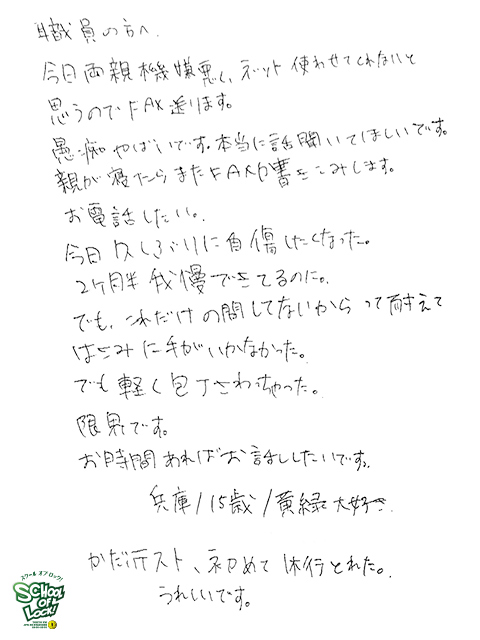 職員の方へ
今日両親機嫌悪く、ネット使わせてくれないと
思うのでFAX送ります。
愚痴やばいです。本当に話聞いてほしいです。
親が寝たらまたFAXか書きこみします。
お電話したい。
今日久しぶりに自傷したくなった。
2ヶ月半我慢できてるのに。
でも、これだけの間してないからって耐えて
はさみに手がいかなかった。
でも軽く包丁さわっちゃった。
限界です。
お時間あればお話ししたいです。
兵庫/15歳/黄緑大好き
テスト、初めて
とれた。
うれしいです。
スクール オブ ロック!
SCHOOL
OF
LOCK!